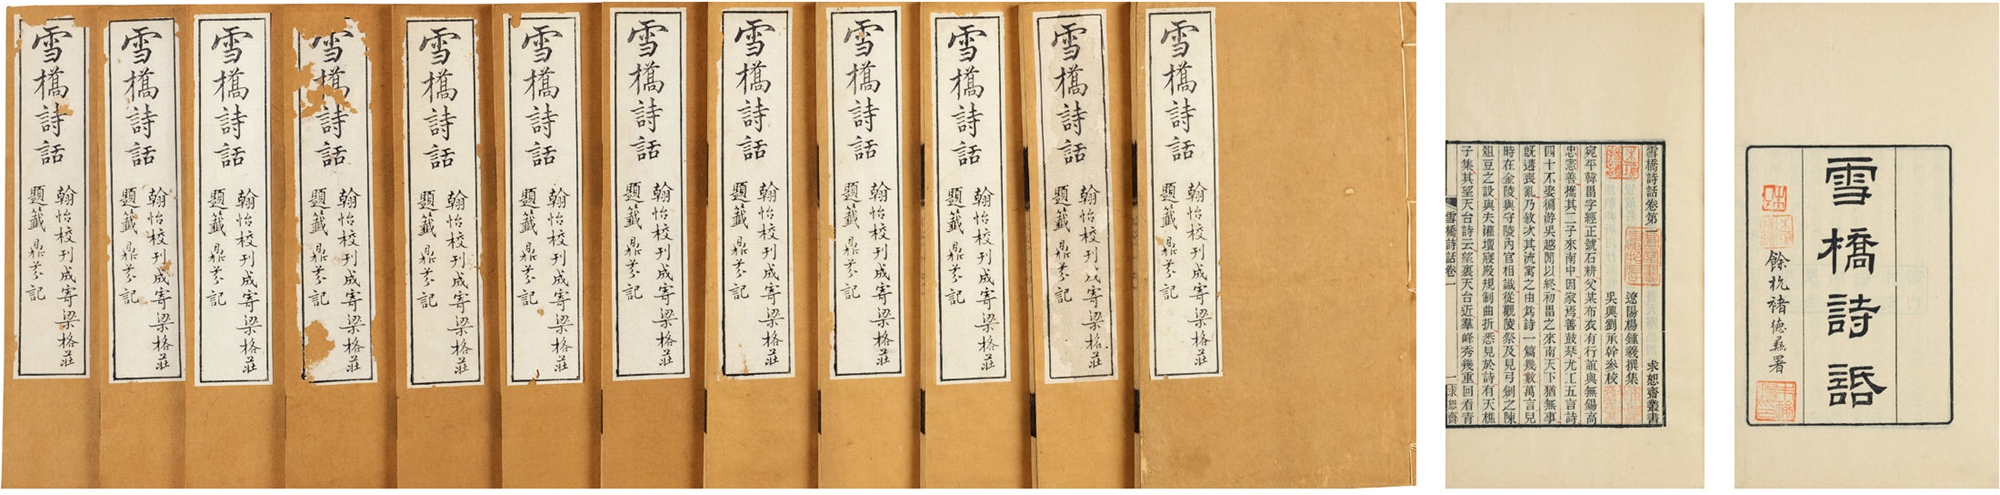 雪橋詩話
翰怡校刊成寄梁格莊
題籤鼎芬記
雪橋詩話
翰怡校刊成寄梁格莊
題籤鼎芬記
雪橋詩話
翰怡校刊成寄梁格莊
題籤鼎芬記
雪橋詩話
翰怡校刊成寄梁格莊
題籤鼎芬記
雪橋詩話
翰怡校刊成寄梁格莊
題籤鼎芬記
雪橋詩話
翰怡校刊成寄梁格莊
題籤鼎芬記
雪橋詩話
翰怡校刊成寄梁格莊
題籤鼎芬記
雪橋詩話
翰怡校刊成寄梁格莊
題籤鼎芬記
雪橋詩話
翰怡校刊成寄梁格莊
題籤鼎芬記
雪橋詩話
翰怡校刊成寄梁格莊
題籤鼎芬記
雪橋詩話
翰怡校刊成寄梁格莊
題籤鼎芬記
雪橋詩話
翰怡校刊成寄梁格莊
題籤鼎芬記
雪橋詩話卷第一 求恕齋叢書
遼陽楊鍾羲撰集
吳興劉承幹參校
宛平韓畕字經正號石耕父某布衣有行誼與無錫高
忠憲善攜其二子來南中因家焉善鼓琴尤工五言詩
四十不娶獨游吳越閒以終初畕之來南天下猶無事
旣遭喪亂乃敘次其流寓之由爲詩一篇幾數萬言兒
時在金陵與守陵內官相識從觀陵祭及見弓劍之陳
俎豆之設與夫灌壇寢殿規制曲折悉見於詩有天樵
子集其望天台詩云望裏天台近羣峰秀幾重回看青
雪橋詩話卷一 一 求恕齋
雪橋詩話
餘杭褚德彝署